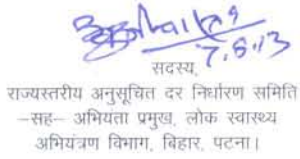 7.6.13
सदस्य,
राज्यस्तरीय अनुसूचित दर निर्धारण समिति
–सह– अभियंता प्रमुख, लोक स्वास्थ्य
अभियंत्रण विभाग, बिहार, पटना।